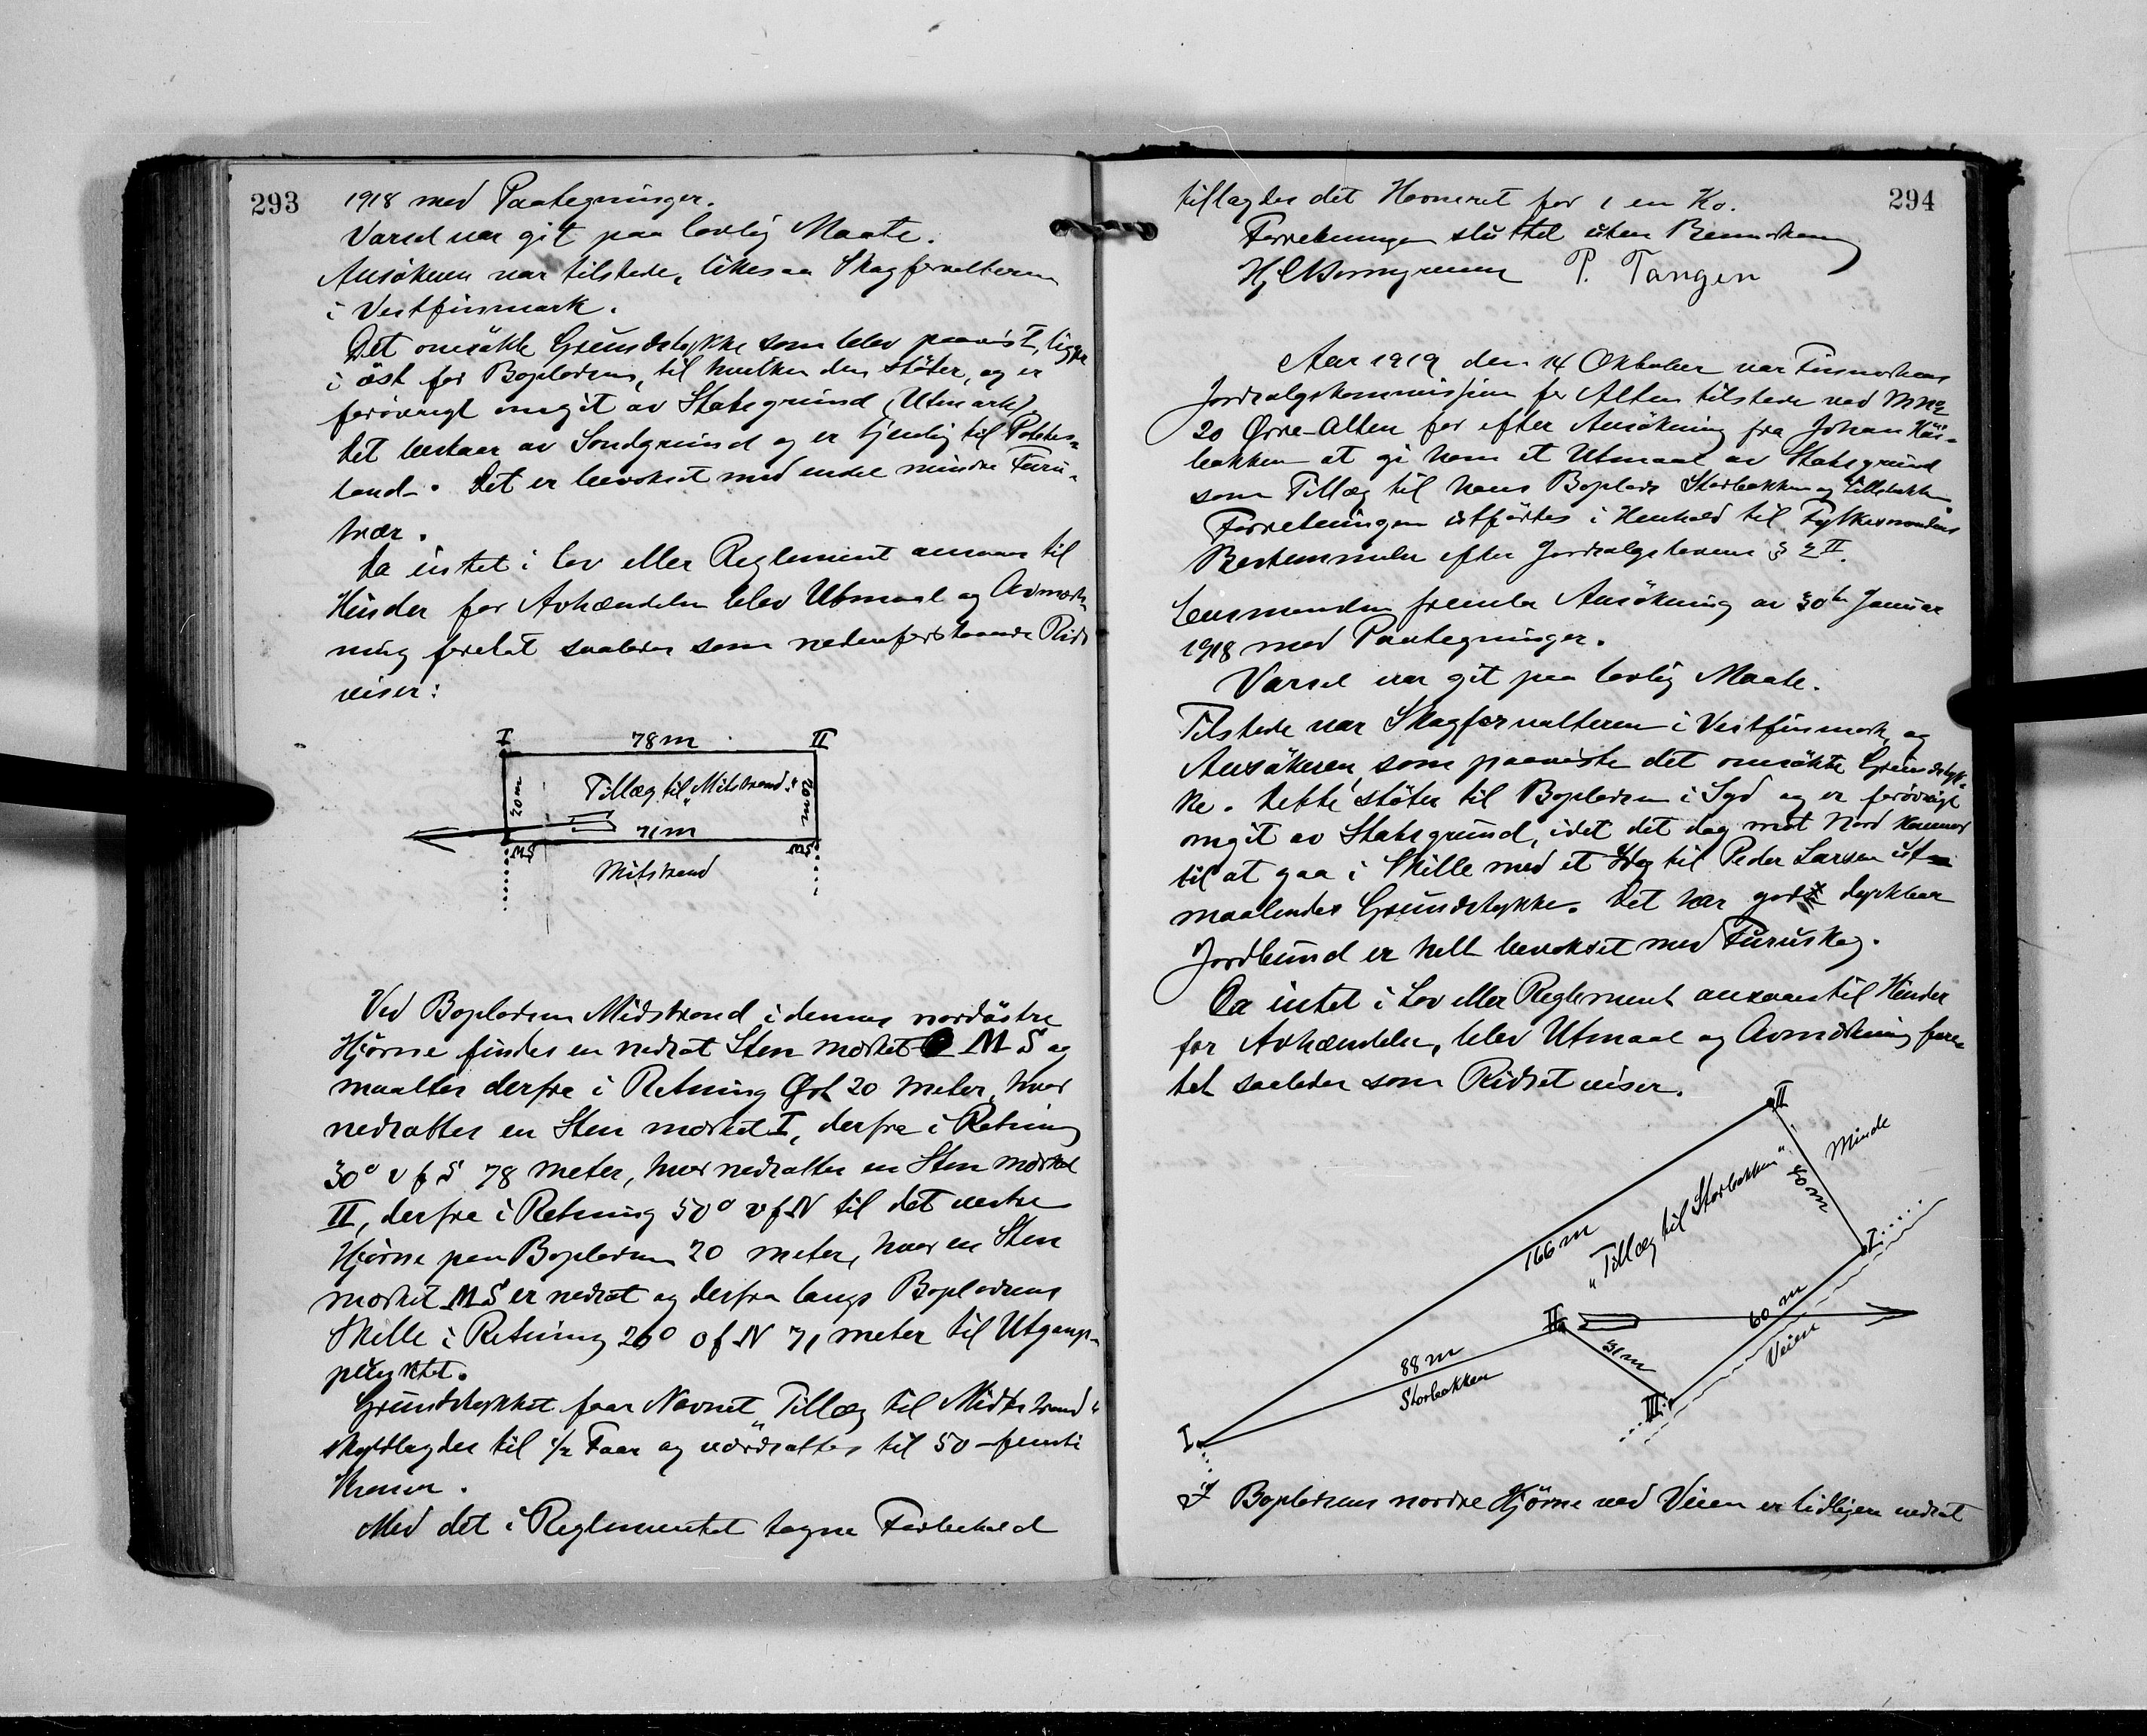 293
1918 med Paategninger.
Varsel var git paa lovlig Maate.
Ansökeren var tilstede, likesaa Skogforvalteren
i Vestfinmark.
Det omsökte Grundstykke som blev paavist, ligger
i öst for Bopladsen, til hvilken den stöter, og er
forövrigt omgit av Statsgrund (Utmark).
Det bestaar av Sandgrund og er tjenlig til Potetes-
land. Det er bevokset med endel mindre Furu-
trær.
Da intet i lov eller Reglement ansaaes til
Hinder for Avhændelse blev Utmaal og Avmerk-
ning foretat saaledes som nedenforstaaende Rids
viser:
I 78 m II
20 m Tillæg til „Mitstrand“ 20 m
71 m
MS MS
Mitstrand
Ved Bopladsen Midstrand i dennes nordöstre
Hjörne findes en nedsat Sten merket MS og
maaltes derfra i Retning Öst 20 meter, hvor
nedsattes en Sten merket I, derfra i Retning
30° v f S 78 meter, hvor nedsattes en Sten merket
II, derfra i Retning 50° v f N til det vestre
Hjörne paa Bopladsen 20 meter, hvor en Sten
merket MS er nedsat og derfra langs Bopladsens
Skille i Retning 26° o f N 71 meter til Utgangs-
punktet.
Grundstykket faar Navnet „Tillæg til Midtstrand“
skyldlagdes til 1/2 Faar og værdsattes til 50 - femti
Kroner.
Med det i Reglementet tagne Forbehold
294
tillagdes det Havneret for 1 en Ko.
Forretningen sluttet uten Bemerkning
P. Tangen
Aar 1919 den 14 Oktober var Finmarkens
Jordsalgskommission for Alten tilstede ved Mno
20 Övre-Alten for efter Ansökning fra Johan Käs-
bakken at gi ham et Utmaal av Statsgrund
som Tillæg til hans Boplads Storbakken og Lillebakken
Forretningen utförtes i Henhold til Fylkesmandens
Bestemmelse efter Jordsalgslovens § 2 II.
Lensmanden fremla Ansökning av 30te Januar
1918 med Paategninger.
Varsel var git paa lovlig Maate.
Tilstede var Skogforvalteren i Vestfinmark, og
Ansökeren, som paaviste det omsökte Grundstyk-
ke. Dette stöter til Bopladsen i Syd og er forövrigt
omgit av Statsgrund, idet det dog mot Nord kommer
til at gaa i Skille med et idag til Peder Larsen ut-
maalendes Grundstykke. Det har god dyrkbar
Jordbund er helt bevokset med Furuskog.
Da intet i Lov eller Reglement ansaaes til Hinder
for Avhændelse, blev Utmaal og Avmerkning fore-
tat saaledes som Ridset viser.
II
Minde
50 m
166 m
„Tillæg til Storbakken“
I
II 60 m
88 m 31 m Veien
Storbakken
III
I
I Bopladsens nordre Hjörne ved Veien er tidligere nedsat